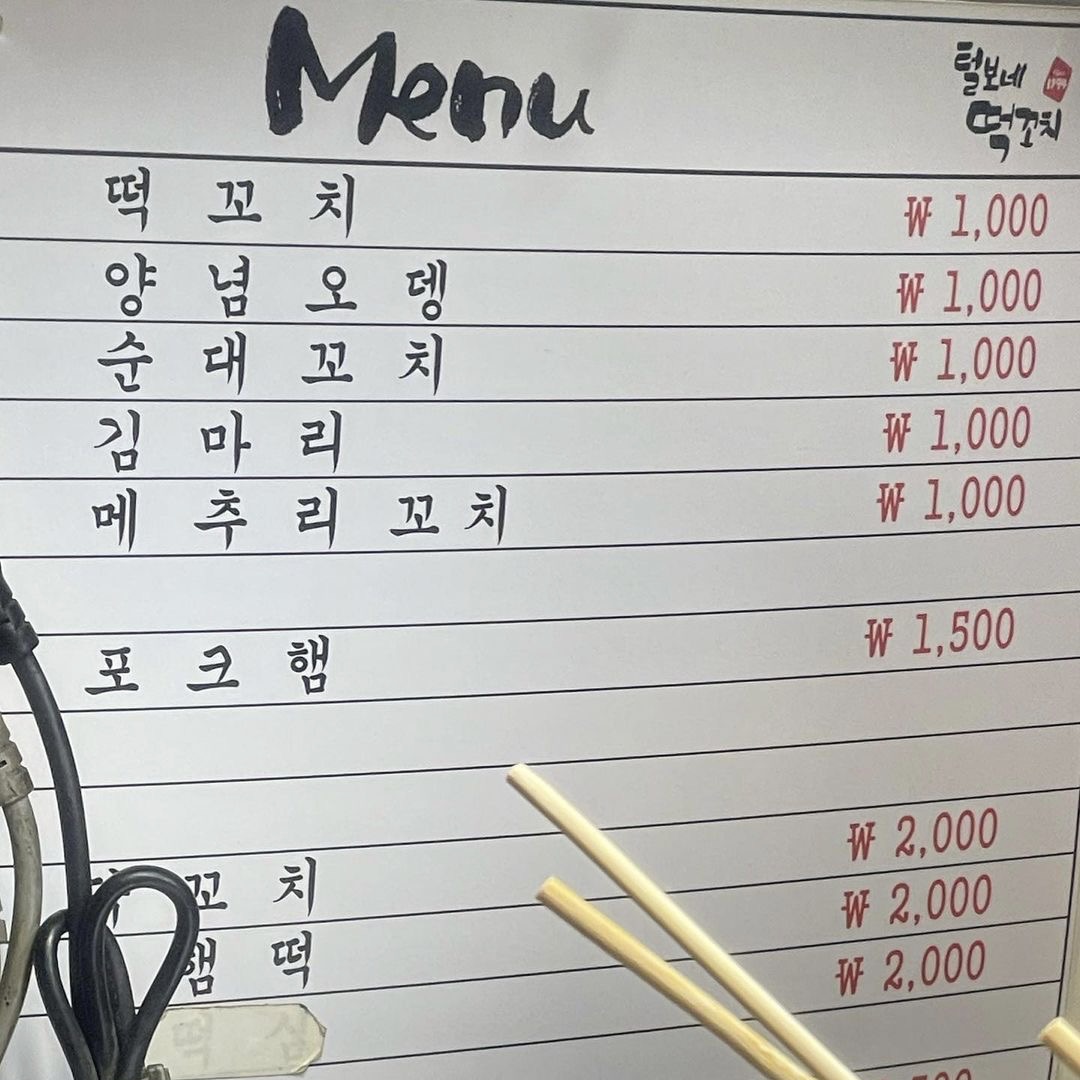 Menu
털보네
떡꼬치
떡 꼬 치 ₩ 1,000
양 념 오 뎅 ₩ 1,000
순 대 꼬 치 ₩ 1,000
김 마 리 ₩ 1,000
메 추 리 꼬 치 ₩ 1,000
포 크 햄 ₩ 1,500
₩ 2,000
꼬 치 ₩ 2,000
햄 떡 ₩ 2,000